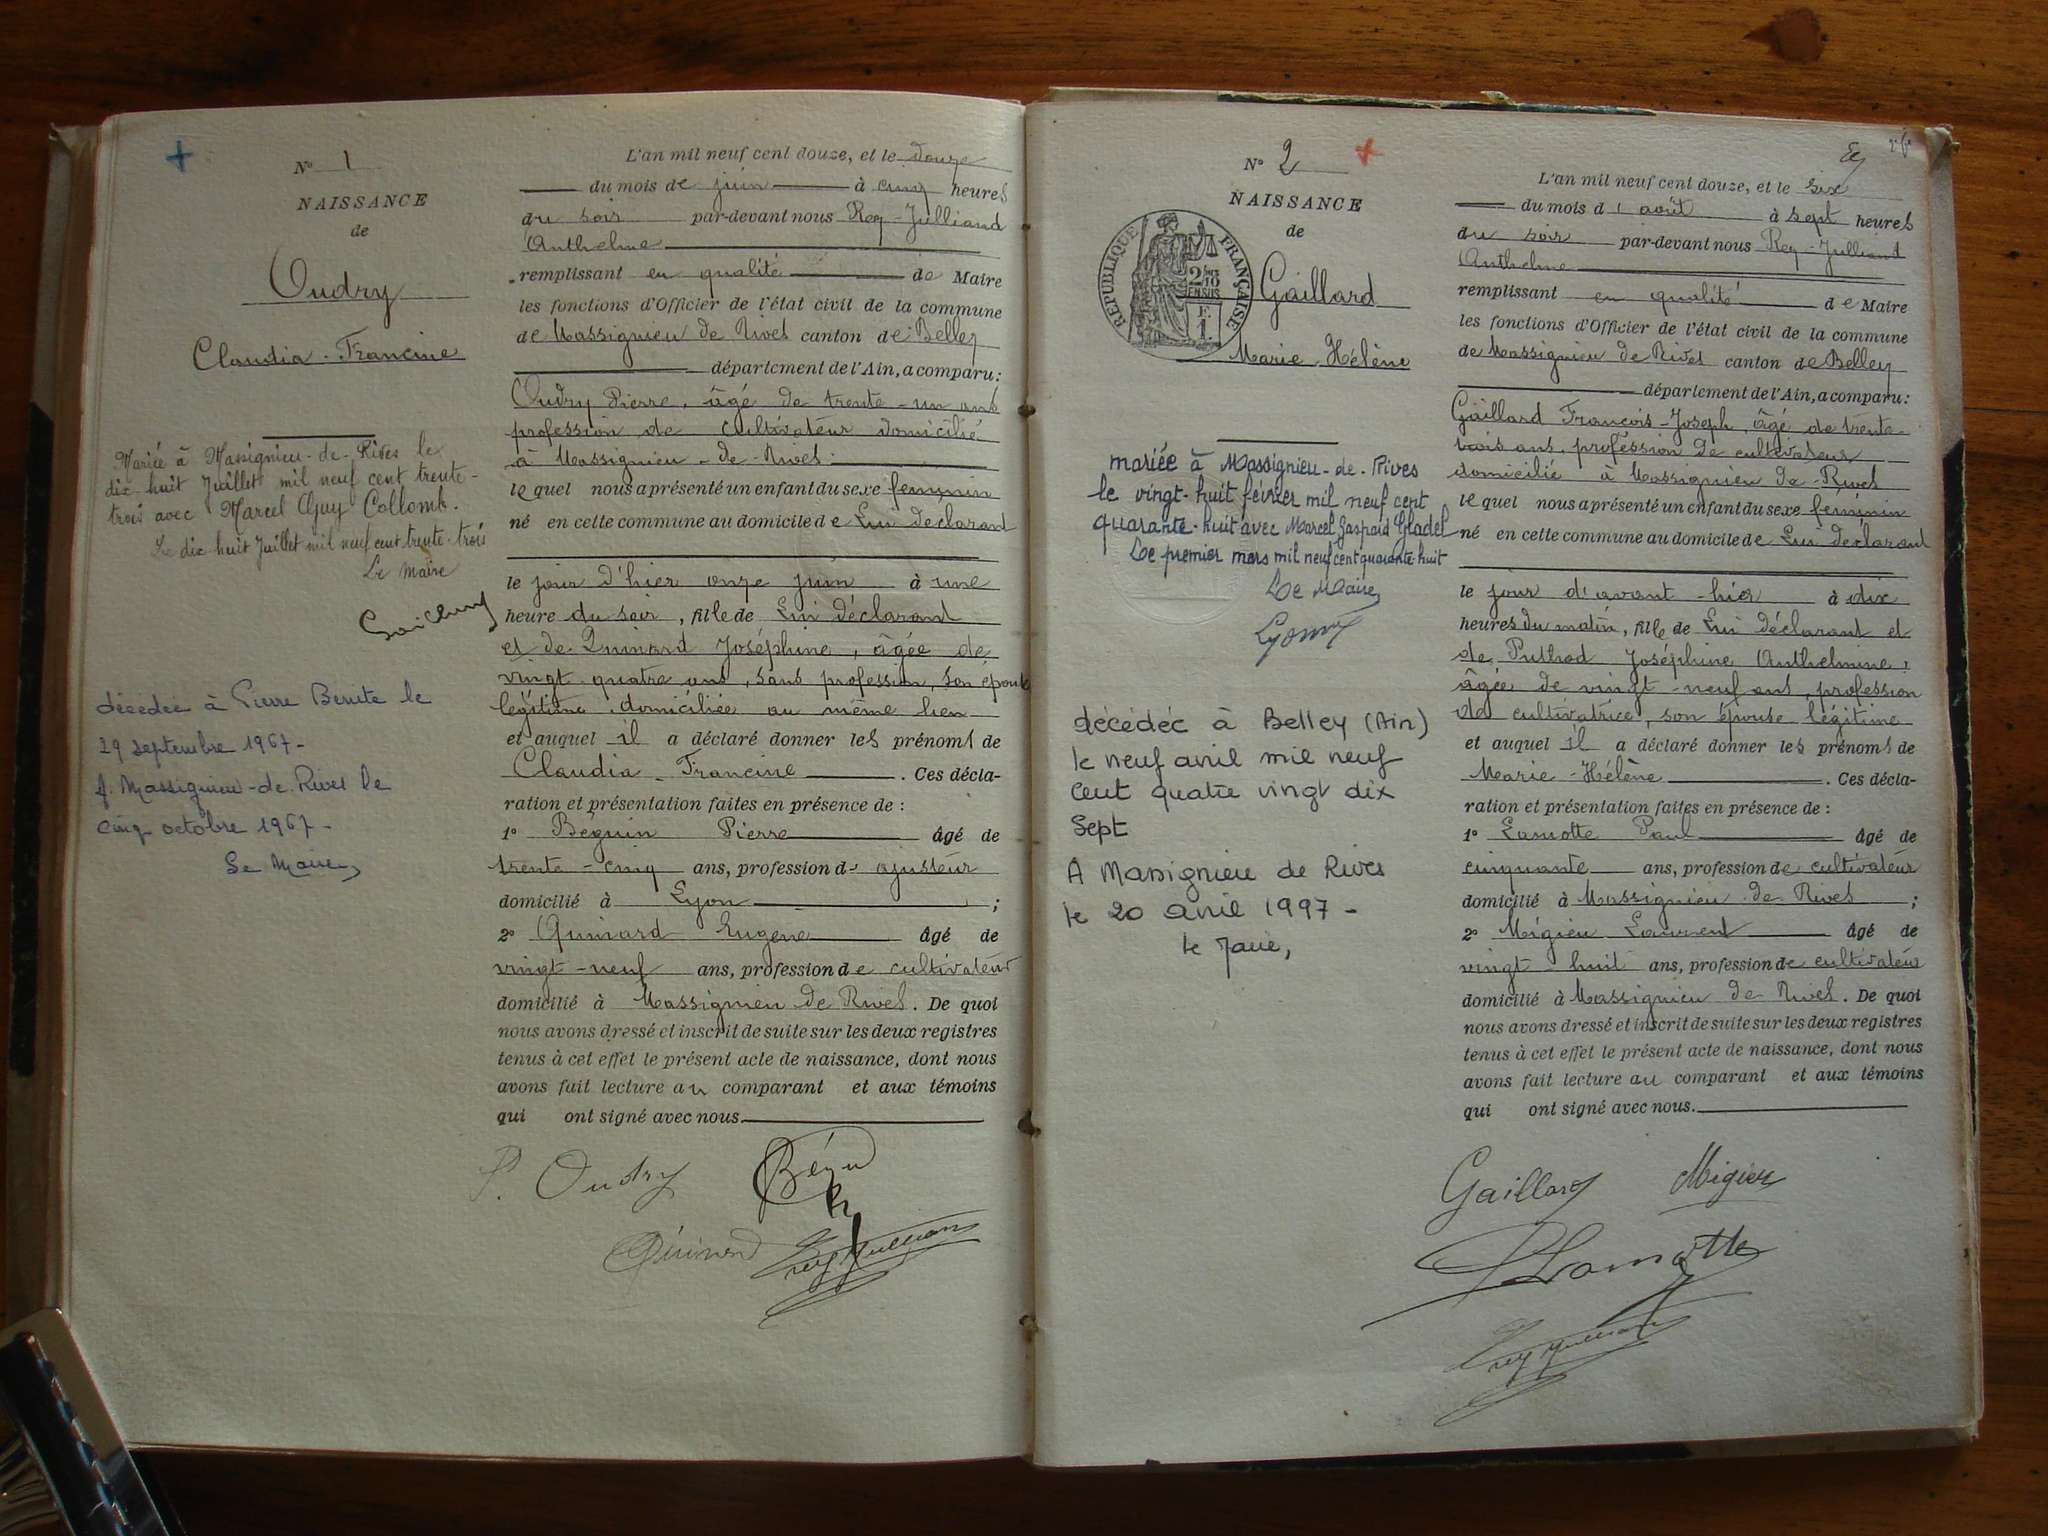 N° 1
NAISSANCE
de
Oudry
Claudia-Francine
Mariée à Massignieu-de-Rives le
dix huit Juillet mil neuf cent trente-
trois avec Marcel Guy Collomb.
Le dix huit Juillet mil neuf cent trente-trois
Le Maire
décédée à Pierre Benite le
29 septembre 1967-
Massignieu-de-Rives le
cinq octobre 1967-
Le Maire,
L'an mil neuf cent douze, et le douze
du mois de juin à cinq heures
du soir par-devant nous Rey-Julliand
Anthelme
remplissant en qualité de Maire
les fonctions d'Officier de l'état civil de la commune
de Massignieu de Rives canton de Belley
département de l'Ain, a comparu:
Oudry Pierre, âgé de trente-un ans
profession de cultivateur domicilié
à Massignieu-de-Rives
lequel nous a présenté un enfant du sexe feminin
né en cette commune au domicile de Lui déclarant
le jour d'hier onze juin à une
heure du soir, fille de Lui déclarant
et de Quinard Joséphine, âgée de
vingt quatre ans, sans profession, son épouse
légitime domiciliée au même lieu
et auquel il a déclaré donner les prénoms de
Claudia-Francine. Ces décla-
ration et présentation faites en présence de :
1° Béguin Pierre âgé de
trente-cinq ans, profession d' ajusteur
domicilié à Lyon ;
2° Quinard Eugène âgé de
vingt-neuf ans, profession de cultivateur
domicilié à Massignieu de Rives. De quoi
nous avons dressé et inscrit de suite sur les deux registres
tenus à cet effet le présent acte de naissance, dont nous
avons fait lecture au comparant et aux témoins
qui ont signé avec nous.
P. Oudry
Quinard
N° 2
NAISSANCE
de
RÉPUBLIQUE FRANÇAISE
Gaillard
Marie-Hélène
mariée à Massignieu-de-Rives
le vingt-huit février mil neuf cent
quarante-huit avec Marcel Gaspard Gladel
Le premier mars mil neuf cent quarante huit
Le Maire,
décédée à Belley (Ain)
le neuf avril mil neuf
cent quatre vingt dix
Sept
A Massignieu de Rives
le 20 avril 1997-
le Maire,
L'an mil neuf cent douze, et le six
du mois d'août à sept heures
du soir par-devant nous Rey-Julliand
Anthelme
remplissant en qualité de Maire
les fonctions d'Officier de l'état civil de la commune
de Massignieu de Rives canton de Belley
département de l'Ain, a comparu:
Gaillard François-Joseph, âgé de trente-
trois ans, profession de cultivateur
domicilié à Massignieu de-Rives
lequel nous a présenté un enfant du sexe féminin
né en cette commune au domicile de Lui déclarant
le jour d'avant-hier à dix
heures du matin, fille de Lui déclarant et
de Puthod Joséphine Anthelmine,
âgée de vingt-neuf ans, profession
de cultivatrice, son épouse légitime
et auquel il a déclaré donner les prénoms de
Marie-Hélène. Ces décla-
ration et présentation faites en présence de :
1° Lamotte Paul âgé de
cinquante ans, profession de cultivateur
domicilié à Massignieu de Rives ;
2° Migieu Laurent âgé de
vingt-huit ans, profession de cultivateur
domicilié à Massignieu de Rives. De quoi
nous avons dressé et inscrit de suite sur les deux registres
tenus à cet effet le présent acte de naissance, dont nous
avons fait lecture au comparant et aux témoins
qui ont signé avec nous.
Gaillard Migieu
Lamotte